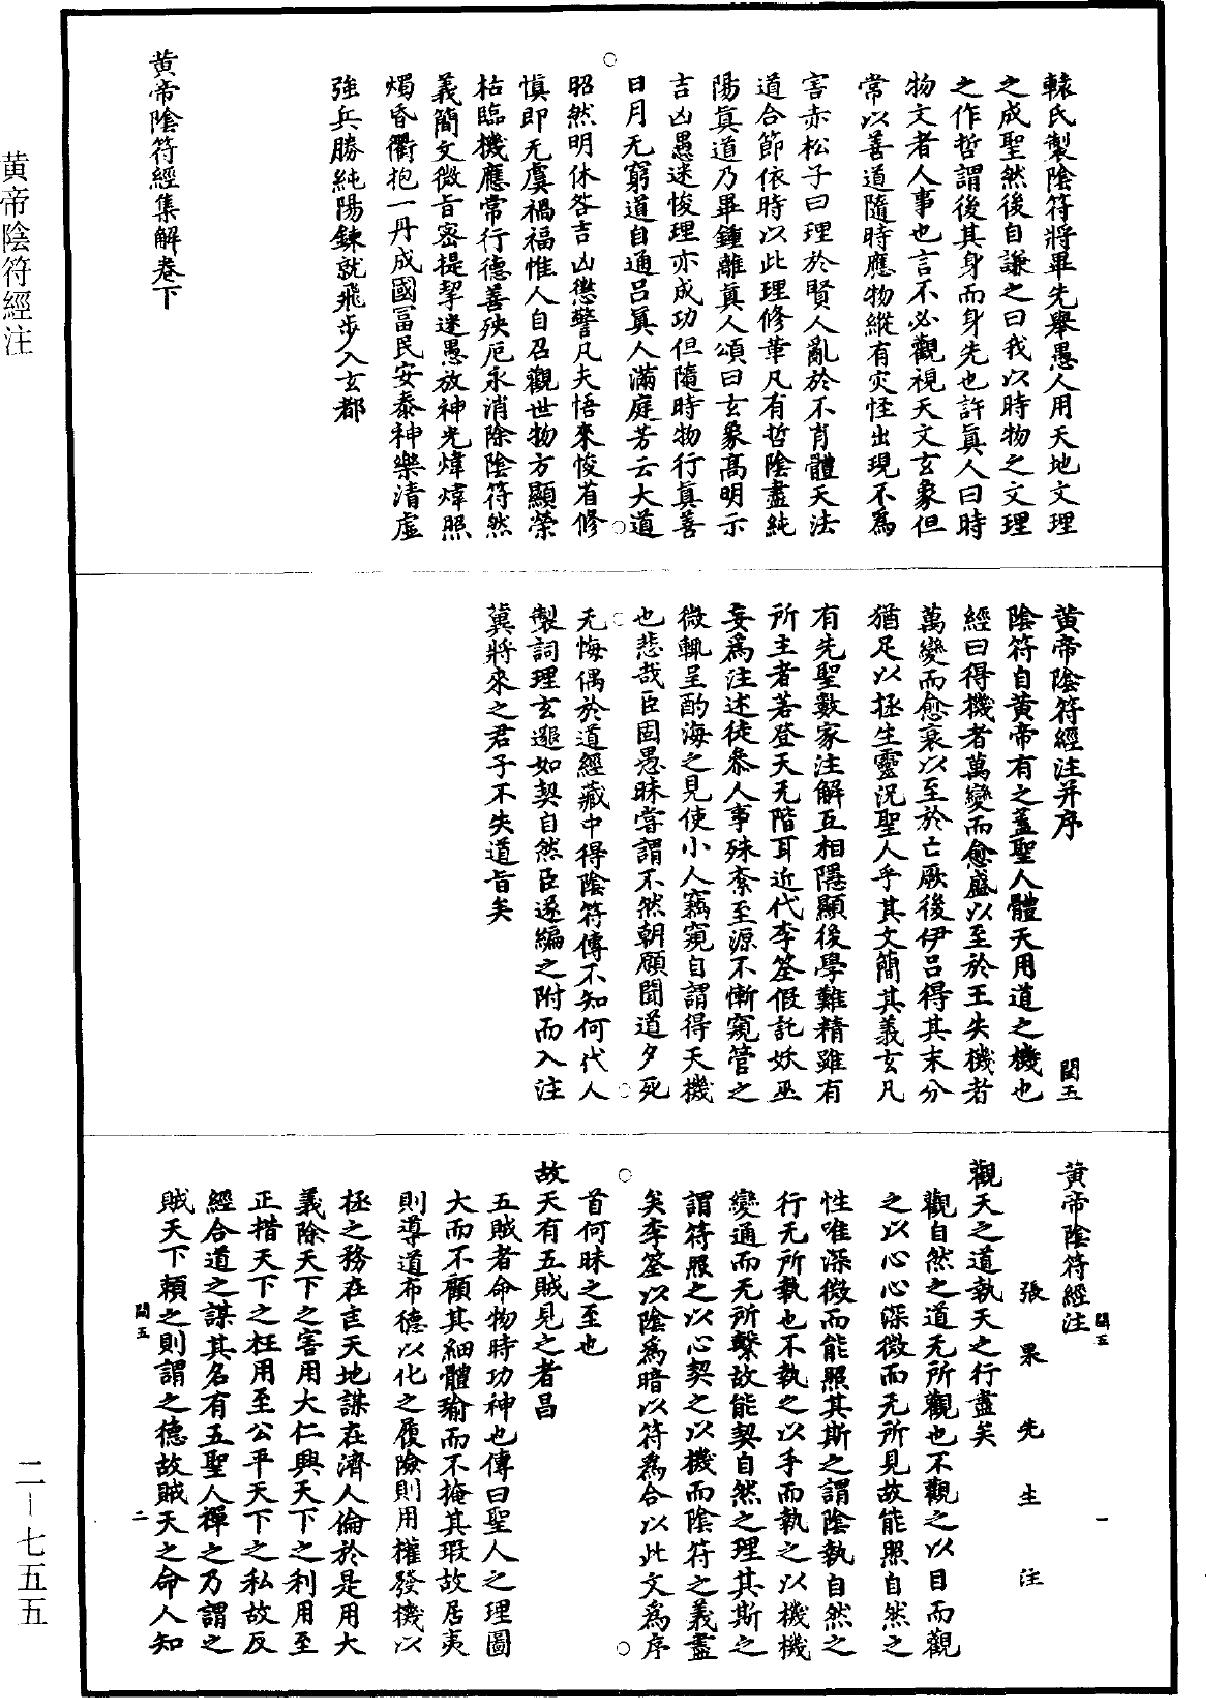 轅氏製陰符將畢先舉愚人用天地文理
之成聖然後自謙之曰我以時物之文理
之作哲謂後其身而身先也許眞人曰時
物文者人事也言不必觀視天文玄象但
常以善道隨時應物縱有灾恠出現不爲
害赤松子曰理於賢人亂於不肖體天法
道合節依時以此理修華凡有哲陰盡純
陽眞道乃畢鍾離眞人頌曰玄象高明示
吉凶愚迷悛理亦成功但隨時物行眞善
日月无窮道自通呂眞人滿庭芳云大道
昭然明休咎吉凶懲警凡夫悟來悛省修
愼即无虞禍福惟人自召觀世物方顯榮
枯臨機應常行德善殃厄永消除陰符然
義簡文微旨密提挈迷愚放神光煒煒照
燭昏衢抱一丹成國冨民安泰神樂清虛
強兵勝純陽鍊就飛步入玄都
黃帝陰符經集解卷下
黃帝陰符經注并序
閏五
陰符自黃帝有之蓋聖人體天用道之機也
經曰得機者萬變而愈盛以至於王失機者
萬變而愈衰以至於亡厥後伊呂得其末分
猶足以拯生靈況聖人乎其文簡其義玄凡
有先聖數家注解互相隱顯後學難精雖有
所主者若登天无階耳近代李筌假託妖巫
妄爲注述徒叅人事殊紊至源不慚窺管之
微輒呈酌海之見使小人竊窺自謂得天機
也悲哉臣固愚昧嘗謂不然朝願聞道夕死
无悔偶於道經藏中得陰符傳不知何代人
製詞理玄邈如契自然臣遂編之附而入注
冀將來之君子不失道旨矣
黃帝陰符經注
閏五
一
張果先生注
觀天之道執天之行盡矣
觀自然之道无所觀也不觀之以目而觀
之以心心深微而无所見故能照自然之
性唯深微而能照其斯之謂陰執自然之
行无所執也不執之以手而執之以機機
變通而无所繫故能契自然之理其斯之
謂符照之以心契之以機而陰符之義盡
矣李筌以陰爲暗以符爲合以此文爲序
首何昧之至也
故天有五賊見之者昌
五賊者命物時功神也傳曰聖人之理圖
大而不顧其細體瑜而不掩其瑕故居夷
則導道布德以化之履險則用權發機以
拯之務在匡天地謀在濟人倫於是用大
義除天下之害用大仁興天下之利用至
正措天下之枉用至公平天下之私故反
經合道之謀其名有五聖人禪之乃謂之
賊天下賴之則謂之德故賊天之命人知
閏五
二
黃帝陰符經注
二—七五五